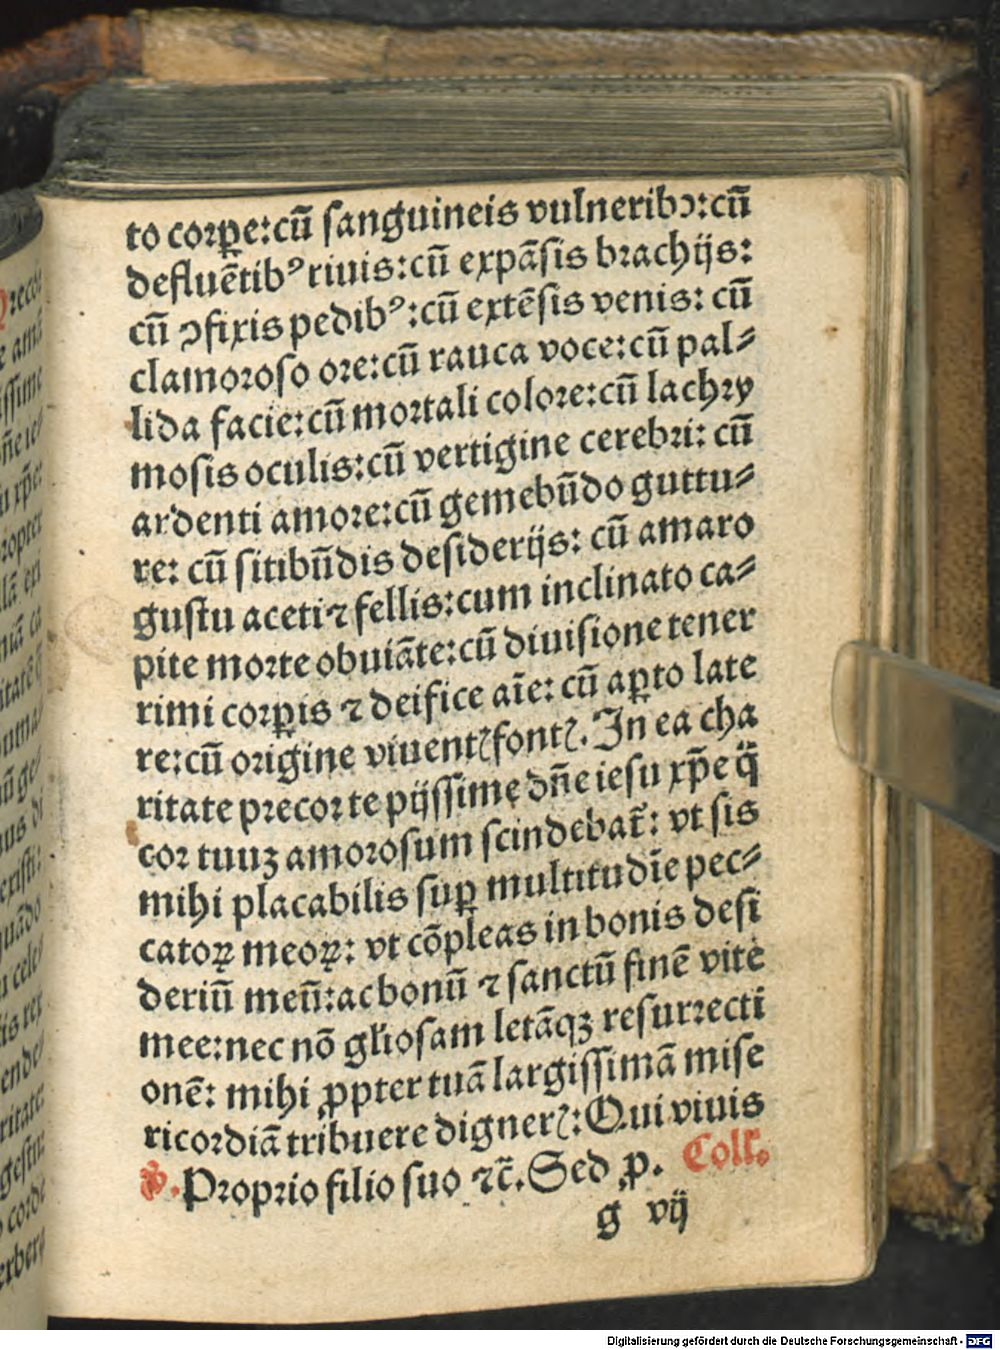 to corꝑe:cū ſanguineis vulneribꝰ:cū
defluētibꝰ riuis:cū expāſis brachijs:
cū ꝯfixis pedibꝰ:cū extēſis venis: cū
clamoroſo ore:cū rauca voce:cū pal⸗
lida facie:cū mortali colore:cū lachry
moſis oculis:cū vertigine cerebri: cū
ardenti amore:cū gemebūdo guttu⸗
re: cū ſitibūdis deſiderijs: cū amaro
guſtu aceti ⁊ fellis:cum inclinato ca⸗
pite morte obuiāte:cū diuiſione tener
rimi corꝑis ⁊ deifice aīe: cū aꝑto late
re:cū origine viuentꝭ fontꝭ. In ea cha
ritate precor te pijſſime dn̄e ieſu xp̄e q̄
cor tuuꝫ amoroſum ſcindebat̄: vt ſis
mihi placabilis ſuꝑ multitudīe pec⸗
catoꝝ meoꝝ: vt cōpleas in bonis deſi
deriū meū:ac bonū ⁊ ſanctū finē vite
mee:nec nō gl̄ioſam letāqꝫ reſurrecti
onē: mihi ꝓpter tuā largiſſimā miſe
ricordiā tribuere dignerꝭ:Qui viuis
℣. Proprio filio ſuo ⁊c̄. Sed ꝓ. Coll̄.
g vij
Digitalisierung gefördert durch die Deutsche Forschungsgemeinschaft - DFG